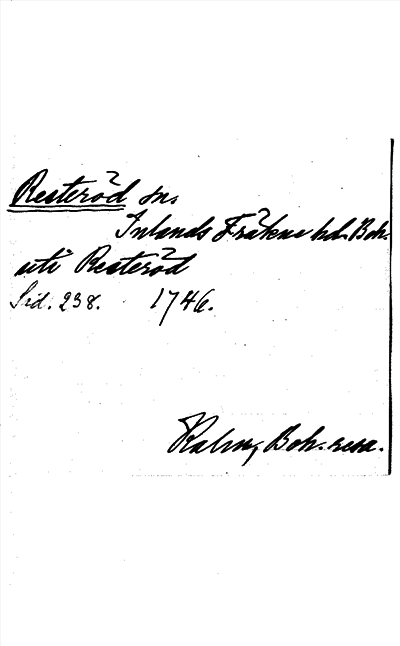 Resteröd sn.
Inlands Fräkne hd. Boh.
uti Resteröd
Sid. 238. 1746.
Kalm, Boh. resa.